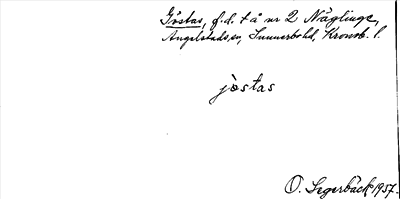 Göstas, f.d. t å nr 2 Näglinge,
Angelstads sn, Sunnerbo hd, Kronob. l.
jòstas
O. Segerbäck 1957.